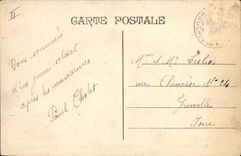 II
CARTE POSTALE
Bons souvenirs
d'un jeune soldat
après les manœuvres
Paul Cholet
M. & Mme
rue Chenoise N° 24
Grenoble
Isère